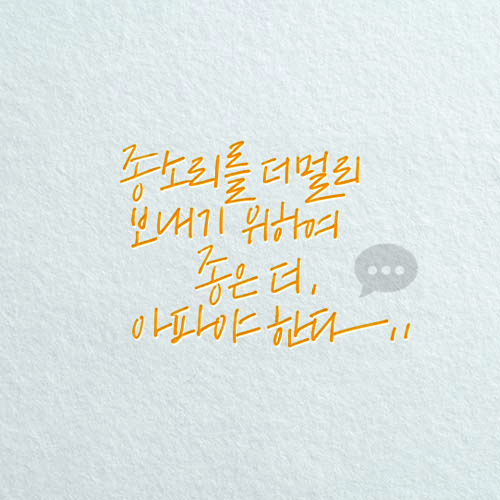 종소리를 더멀리
보내기 위하여
종은 더,
아파야 한다..